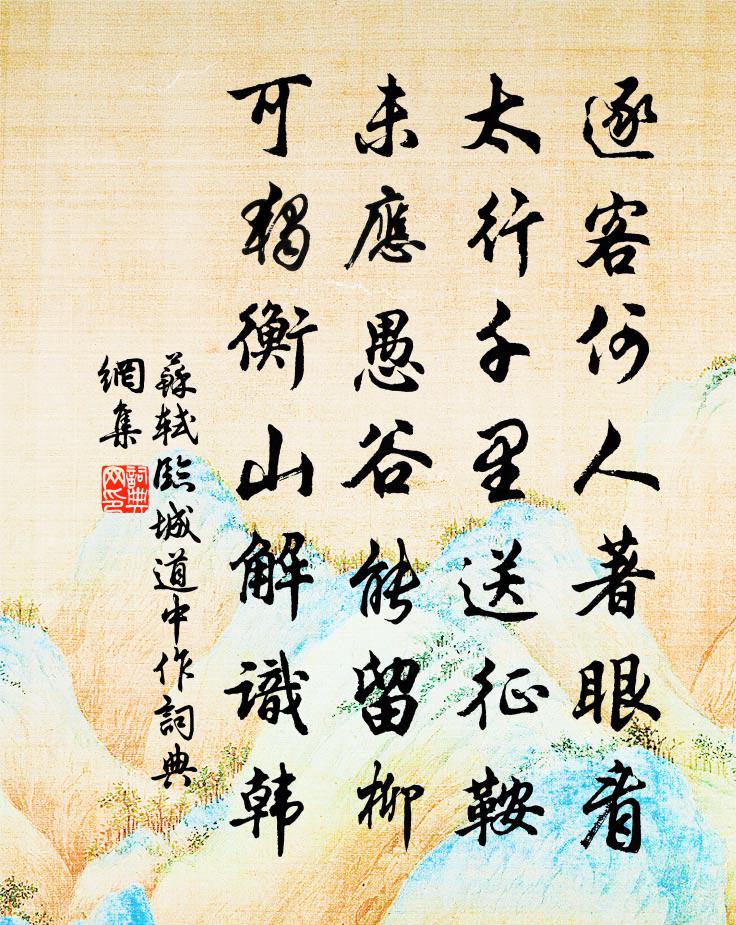 逐客何人著眼看
太行千里送征鞍
未應愚谷能留柳
可獨衡山解識韩
蘇軾臨城道中作詞典
網集
詞典
网印